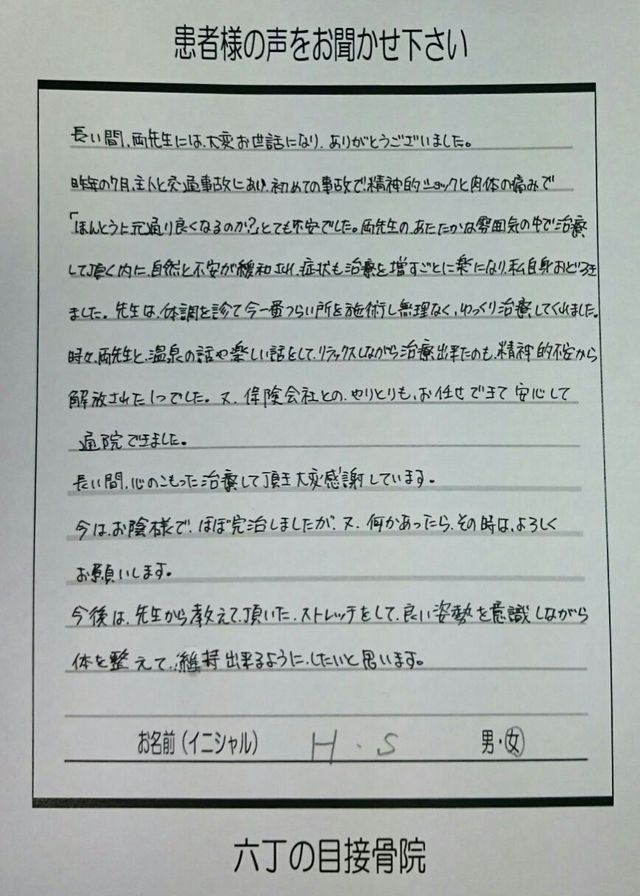 患者様の声をお聞かせ下さい
長い間、両先生には、大変お世話になり、ありがとうございました。
昨年の7月、主人と交通事故にあい、初めての事故で精神的ショックと肉体の痛みで
「ほんとうに元通り良くなるのか?」とても不安でした。両先生の、あたたかな雰囲気の中で治療
して頂く内に、自然と不安が緩和され、症状も治療を増すごとに楽になり、私自身おどろき
ました。先生は、体調を診て今一番つらい所を施術し無理なく、ゆっくり治療してくれました。
時々、両先生と、温泉の話や楽しい話をして、リラックスしながら治療出来たのも、精神的不安から
解放された1つでした。又、保険会社との、やりとりも、お任せできて安心して
通院できました。
長い間、心のこもった治療して頂き大変感謝しています。
今は、お陰様で、ほぼ完治しましたが、又、何かあったら、その時は、よろしく
お願いします。
今後は、先生から教えて、頂いた、ストレッチをして、良い姿勢を意識しながら
体を整えて、維持出来るように、したいと思います。
お名前(イニシャル) H・S 男・女
六丁の目接骨院